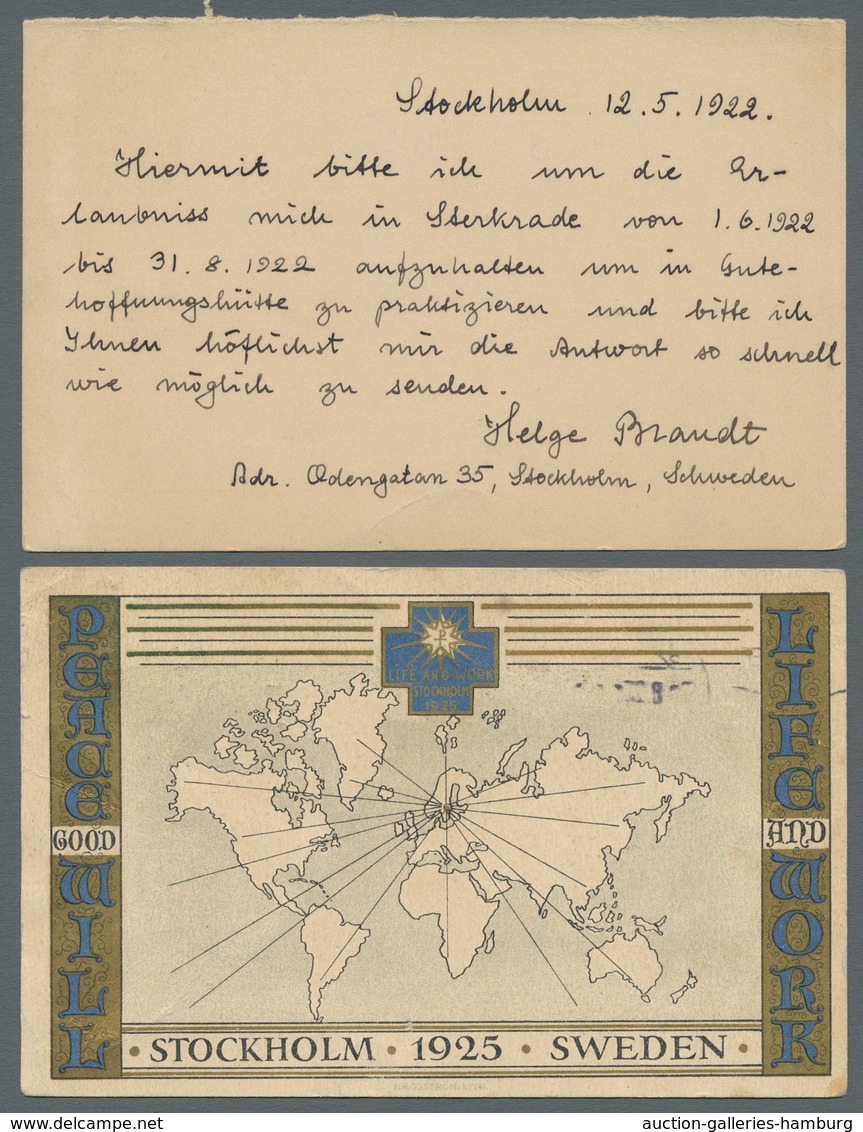 Stockholm 12.5.1922.
Hiermit bitte ich um die Er-
laubniss mich in Sterkrade von 1.6.1922
bis 31.8.1922 aufzuhalten um in Gute-
hoffnungshütte zu praktizieren und bitte ich
Ihnen höflichst mir die Antwort so schnell
wie möglich zu senden.
Helge Brandt
Adr. Odengatan 35, Stockholm, Schweden
PEACE
GOOD
WILL
LIFE AND WORK
STOCKHOLM
1925
LIFE
AND
WORK
· STOCKHOLM · 1925 · SWEDEN ·
HÆGGSTRÖM, LITO.
www.stampcircuit.com
auction-galleries-hamburg